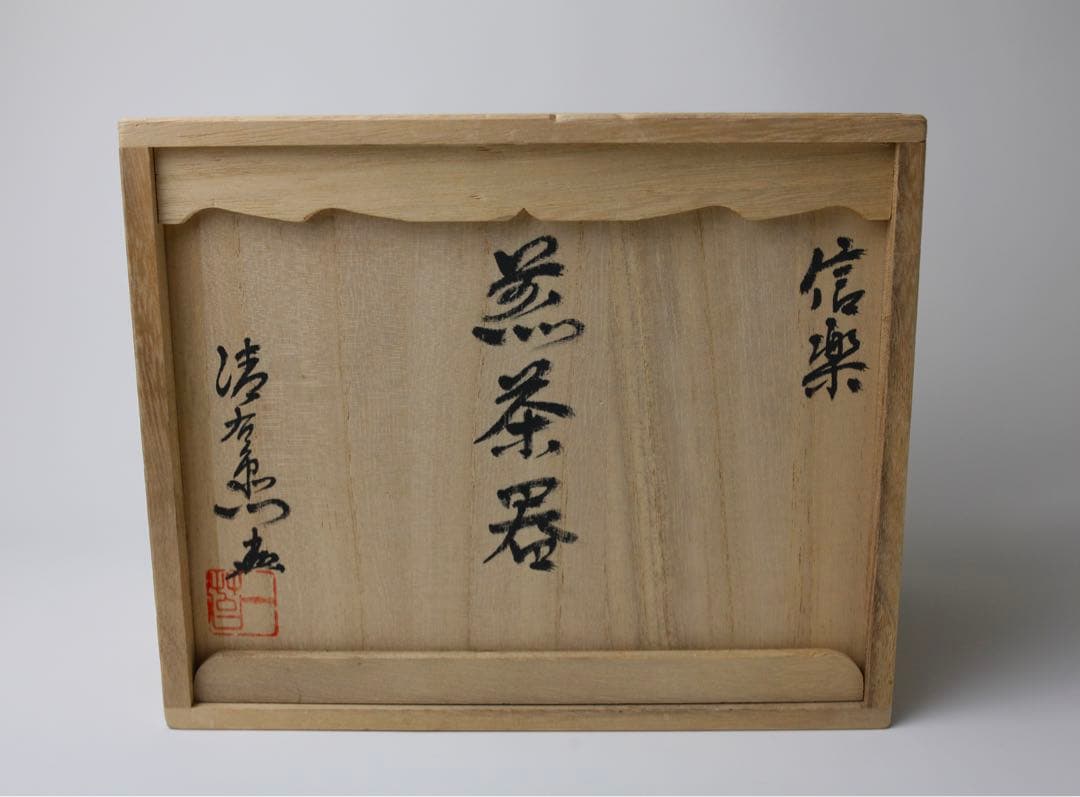 信楽
煎茶器
清右衛門造